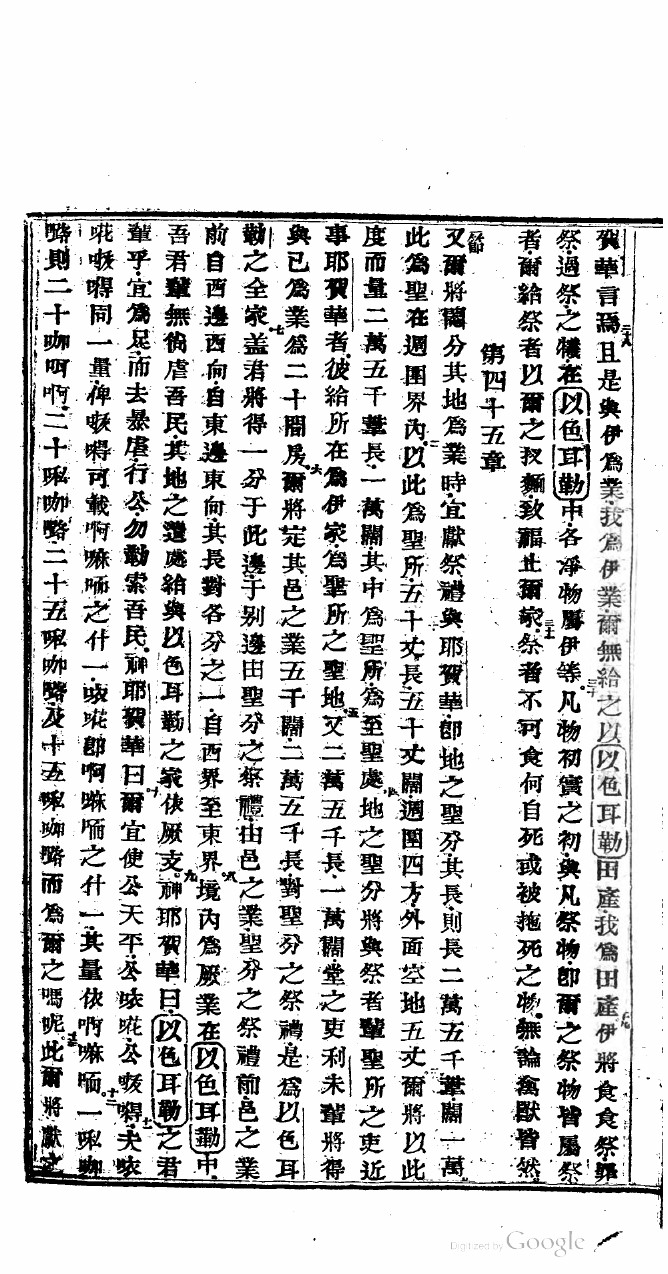 賀華言焉二八且是與伊爲業我爲伊業爾無給之以以色耳勒田產我爲田產二九伊將食食祭罪
祭過祭之犧在以色耳勒中各凈物屬伊等三十凡物初實之初與凡祭物卽爾之祭物皆屬祭
者爾給祭者以爾之初麵致福止爾家三一祭者不可食何自死或被拖死之物無論禽獸皆然
第四十五章
又爾將鬮分其地爲業時宜獻祭禮與耶賀華卽地之聖分其長則長二萬五千葦闊一萬
此爲聖在週圍界內二以此爲聖所五十丈長五十丈闊週圍四方外面空地五丈三爾將以此
度而量二萬五千葦長一萬闊其中爲聖所爲至聖處四地之聖分將與祭者輩聖所之吏近
事耶賀華者彼給所在爲伊家爲聖所之聖地五又二萬五千長一萬闊堂之吏利未輩將得
與已爲業爲二十間房六爾將定其邑之業五千闊二萬五千長對聖分之祭禮是爲以色耳
勒之全家七蓋君將得一分于此邊于別邊由聖分之祭禮由邑之業聖分之祭禮前邑之業
前自西邊西向自東邊東向其長對各分之一自西界至東界八境內爲厥業在以色耳勒中
吾君輩無復虐吾民其地之遺處給與以色耳勒之家依厥支九神耶賀華曰以色耳勒之君
輩乎宜爲足而去暴虐行公勿勒索吾民神耶賀華曰十爾宜使公天平公𠲖𠵽公𠸄嘚十一夫𠲖
同一量俾嘚可載啊嘛𠴕之什一卽啊嘛𠴕之什一其量依啊嘛𠴕十二一𠺌咖
嚕則二十咖呵啊二十𠺌咖嚕二十五𠺌咖嚕及十五𠺌咖嚕而爲爾之嗎呢十三此爾將獻之
Digitized by Google